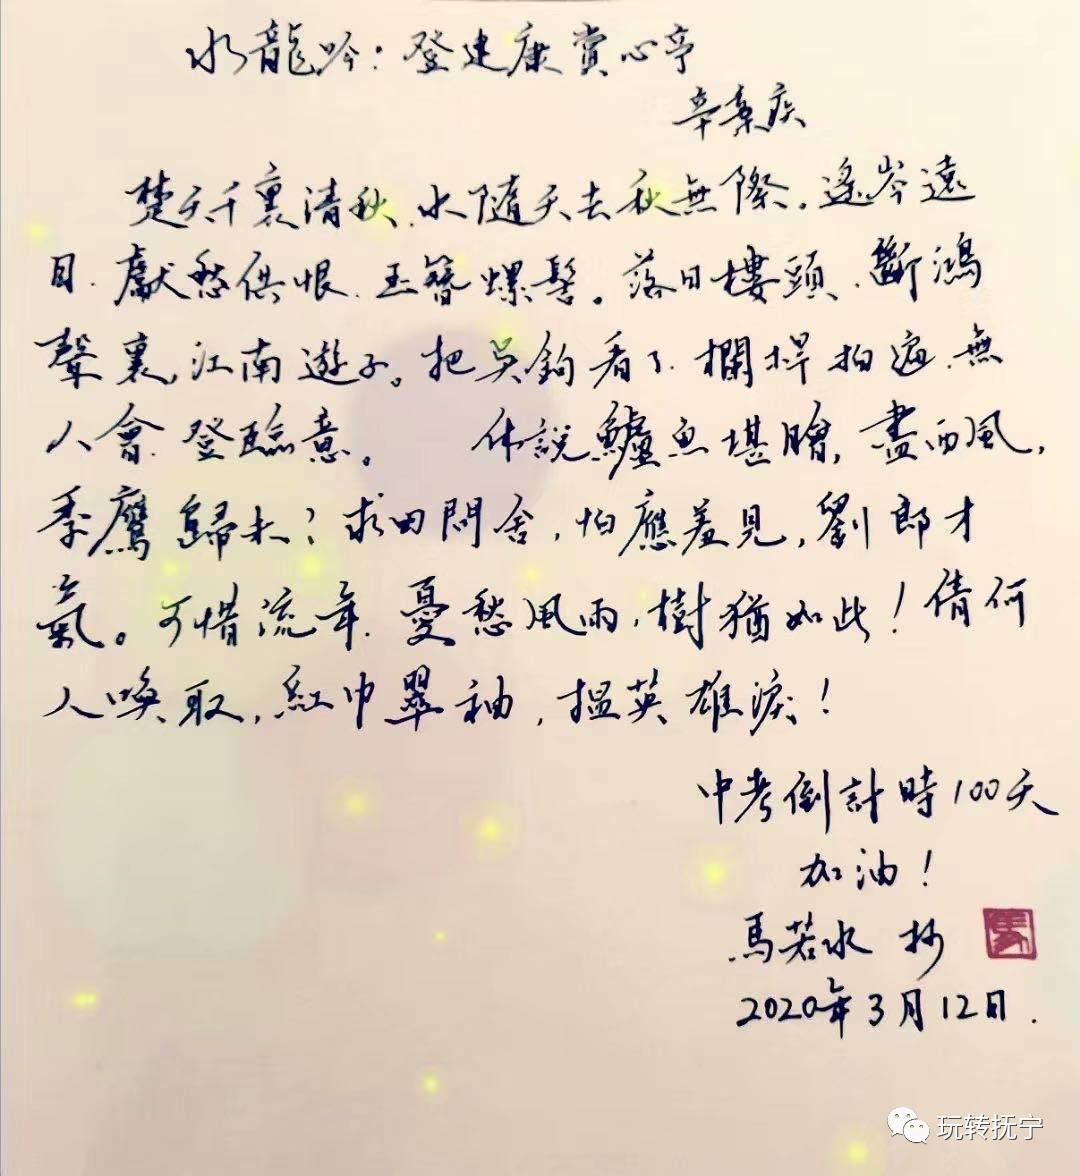 水龍吟：登建康賞心亭
辛棄疾
楚天千裏清秋，水隨天去秋無際。遙岑遠
目，獻愁供恨，玉簪螺髻。落日樓頭，斷鴻
聲裏，江南遊子。把吳鉤看了，欄桿拍遍，無
人會，登臨意。 休說鱸魚堪膾，盡西風，
季鷹歸未？求田問舍，怕應羞見，劉郎才
氣。可惜流年，憂愁風雨，樹猶如此！倩何
人喚取，紅巾翠袖，揾英雄淚！
中考倒計時100天
加油！
馬若水 抄
2020年3月12日.
玩转抚宁